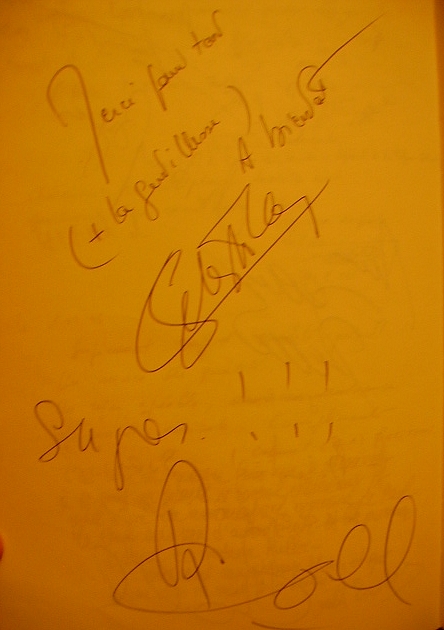 Merci pour tout
(+ la gentillesse)
A bientôt
Super !!!